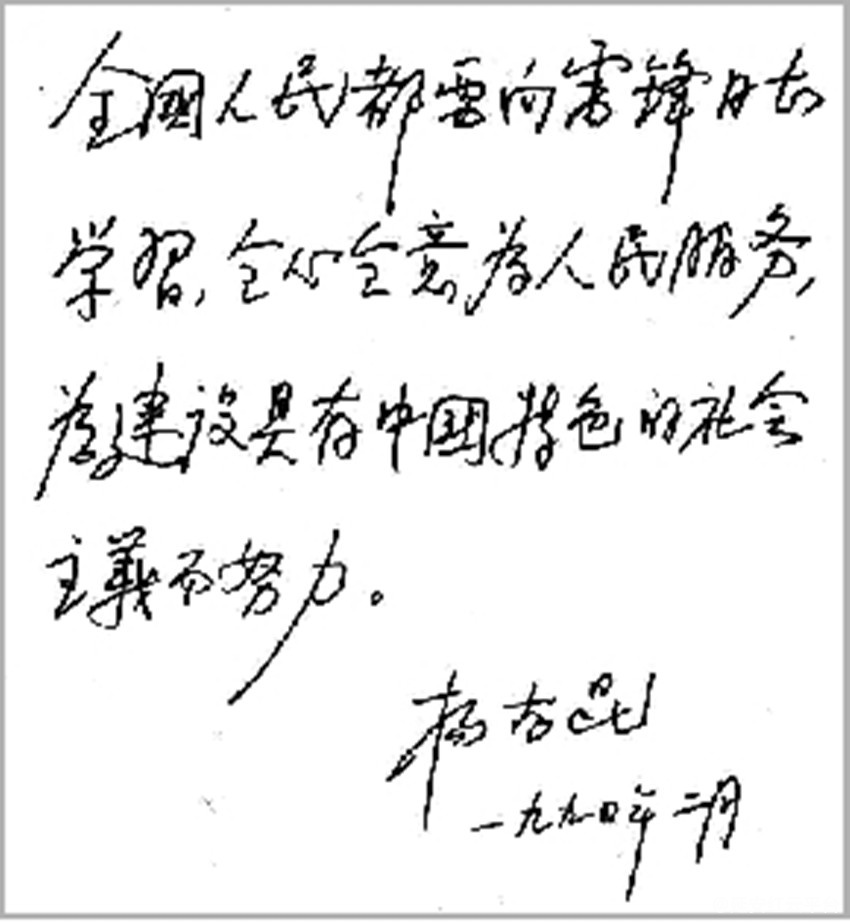 全國人民都要向雷鋒同志
学習，全心全意为人民服务，
为建设具有中國特色的社会
主義而努力。
杨尚昆
一九九〇年二月